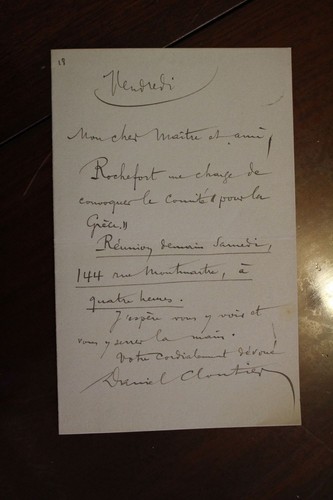 18
Vendredi
Mon cher Maître et ami,
Rochefort me charge de
convoquer le Comité "pour la
Grèce."
Réunion demain Samedi,
144 rue Montmartre, à
quatre heures.
J'espère vous y voir et
vous y serrer la main.
Votre cordialement dévoué
Daniel Cloutier